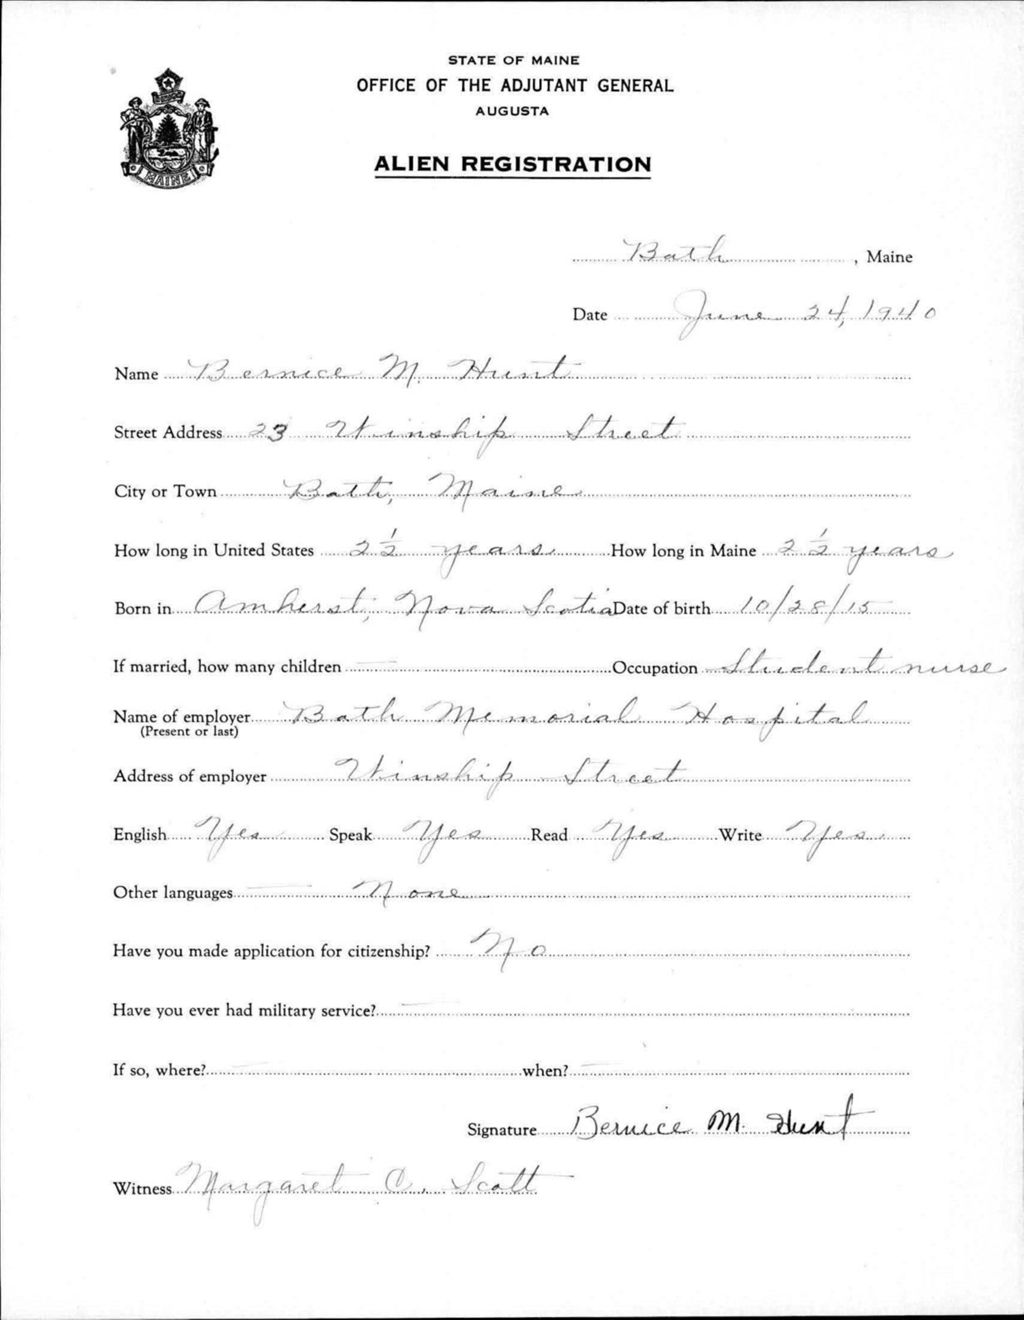 STATE OF MAINE
OFFICE OF THE ADJUTANT GENERAL
AUGUSTA
ALIEN REGISTRATION
MAINE
Bath, Maine
Date June 24, 1940
Name Bernice M. Hunt
Street Address 23 Winship Street
City or Town Bath, Maine
How long in United States 2 1/2 years How long in Maine 2 1/2 years
Born in Amherst, Nova Scotia Date of birth 10/28/15
If married, how many children — Occupation Student nurse
Name of employer Bath Memorial Hospital
(Present or last)
Address of employer Winship Street
English Yes Speak Yes Read Yes Write Yes
Other languages — None
Have you made application for citizenship? No
Have you ever had military service? —
If so, where? — when? —
Signature Bernice M. Hunt
Witness Margaret C. Scott